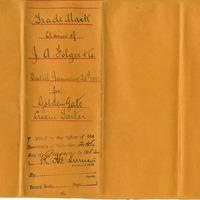 Trade Mark
Claim of
J. A. Folger & Co.
Dated January 20th
for
Golden Gate
Cream Tartar
Filed in the Office of the
Secretary of State the
day of
By
Record Book Page